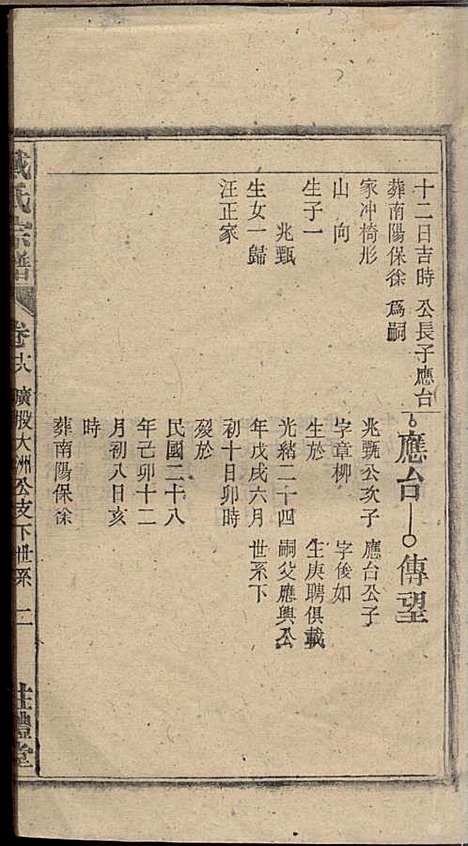 十二日吉時
葬南陽保徐
家冲椅形
山向
生子一
兆甄
生女一歸
汪正家
公長子應台
爲嗣
應台
兆甄公次子
字章柳
生於
光緒二十四
年戊戌六月
初十日卯時
歿於
民國二十八
年己卯十二
月初八日亥
時
葬南陽保徐
傳望
應台公子
字後如
生庚聘俱載
嗣父應興公
世系下
戴氏宗譜
卷
廣股大洲公支下世系
二
禮堂